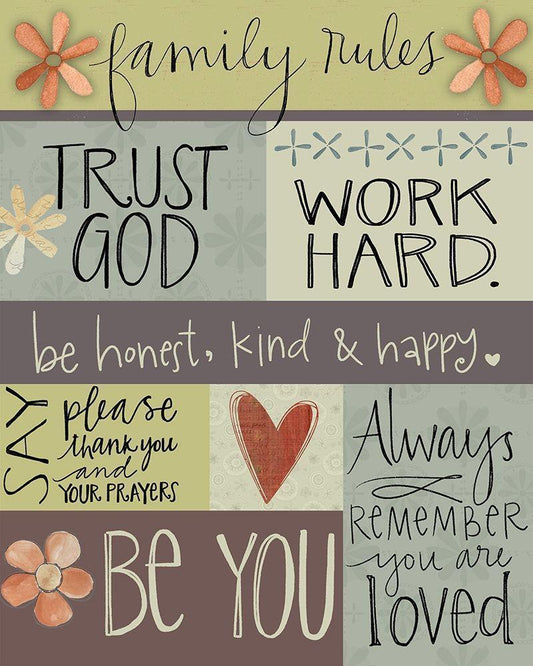 family rules
TRUST
GOD
WORK
HARD.
be honest, kind & happy.
SAY
please
thank you
and
YOUR PRAYERS
Always
REMEMBER
you are
loved
BE YOU